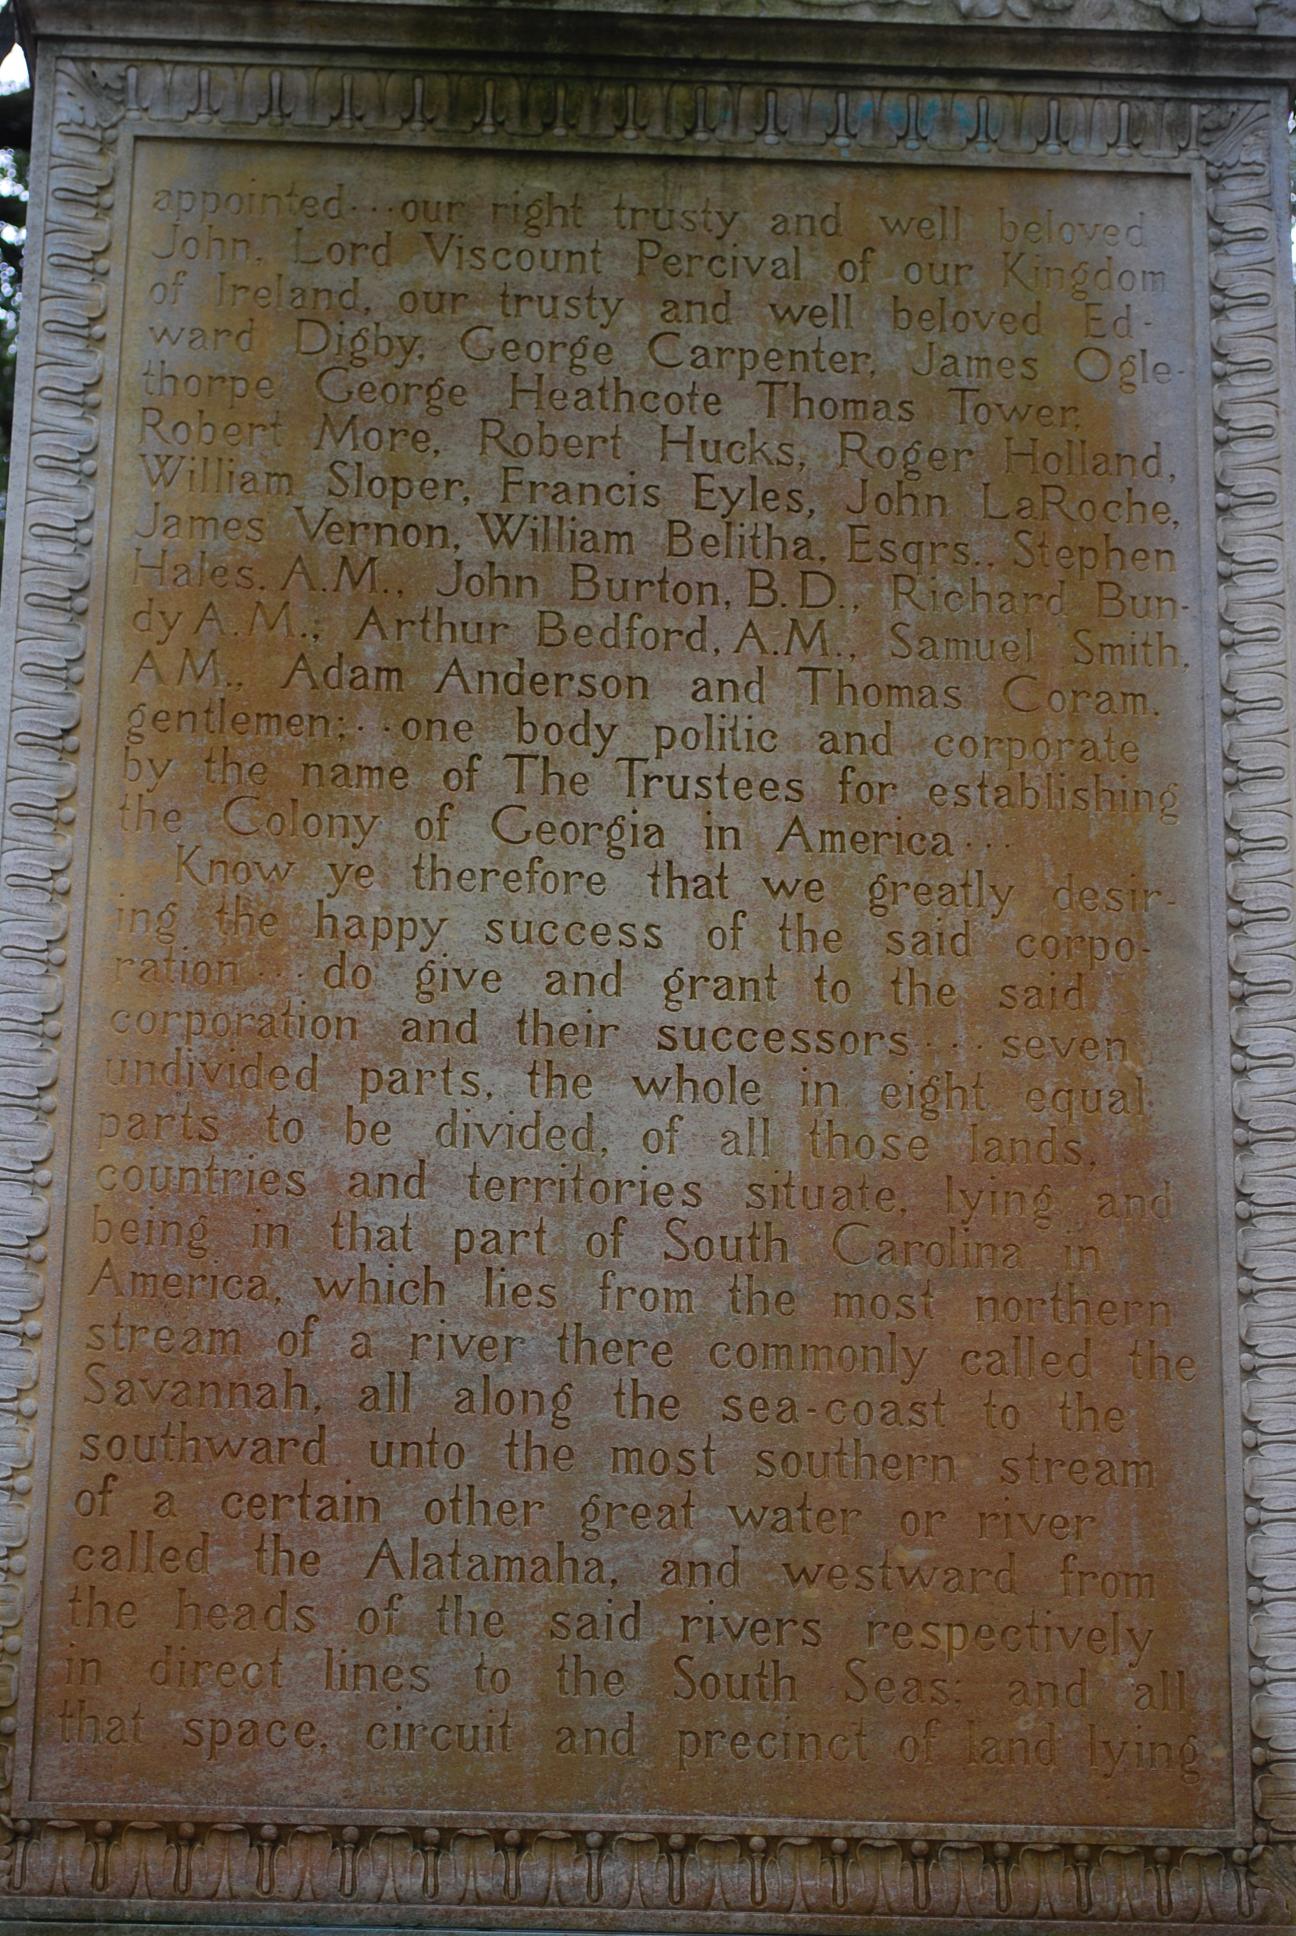 appointed···our right trusty and well beloved
John, Lord Viscount Percival of our Kingdom
of Ireland, our trusty and well beloved Ed-
ward Digby, George Carpenter, James Ogle-
thorpe George Heathcote Thomas Tower,
Robert More, Robert Hucks, Roger Holland,
William Sloper, Francis Eyles, John LaRoche,
James Vernon, William Belitha, Esqrs., Stephen
Hales, A.M., John Burton, B.D., Richard Bun-
dy A.M., Arthur Bedford, A.M., Samuel Smith,
A.M., Adam Anderson and Thomas Coram,
gentlemen;···one body politic and corporate
by the name of The Trustees for establishing
the Colony of Georgia in America···
Know ye therefore that we greatly desir-
ing the happy success of the said corpo-
ration···do give and grant to the said
corporation and their successors···seven
undivided parts, the whole in eight equal
parts to be divided, of all those lands,
countries and territories situate, lying and
being in that part of South Carolina in
America, which lies from the most northern
stream of a river there commonly called the
Savannah, all along the sea-coast to the
southward unto the most southern stream
of a certain other great water or river
called the Alatamaha, and westward from
the heads of the said rivers respectively
in direct lines to the South Seas; and all
that space, circuit and precinct of land lying